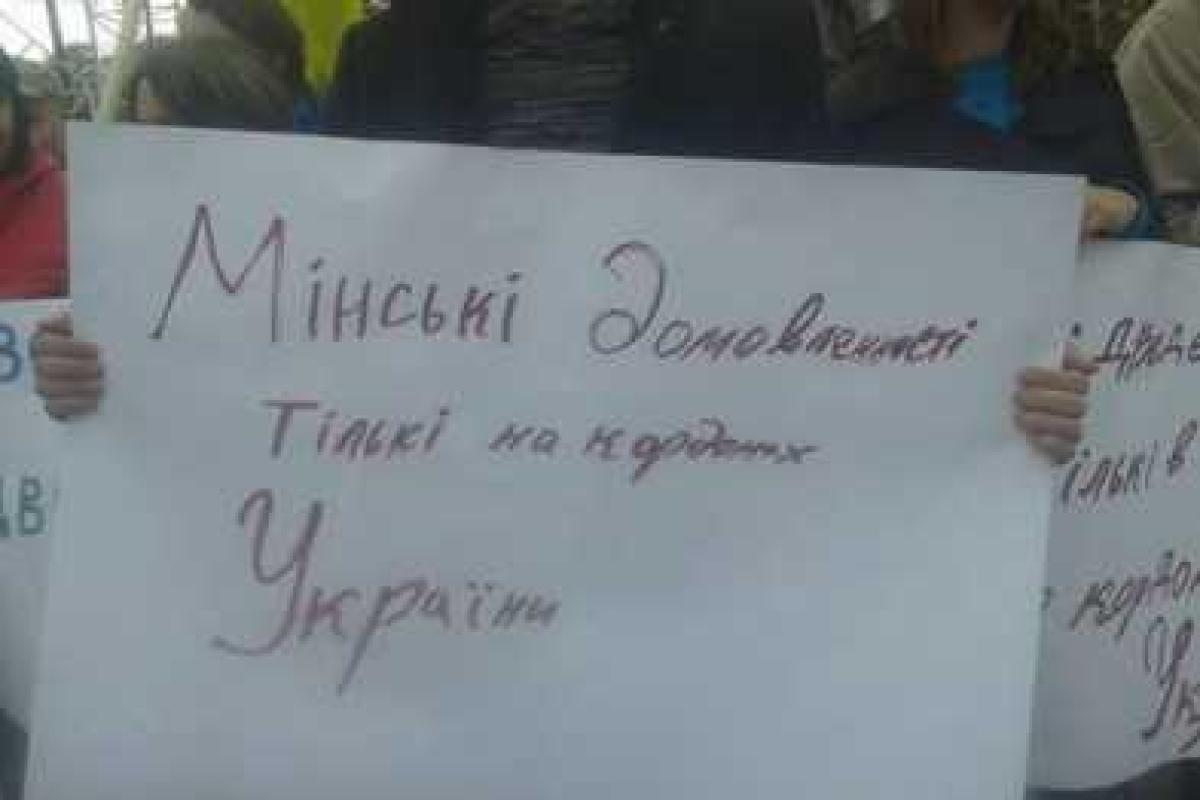 Мінські домовленості
Тількі на кордонах
України
В
ДВ
і друге
ількі в
кордон
Ук